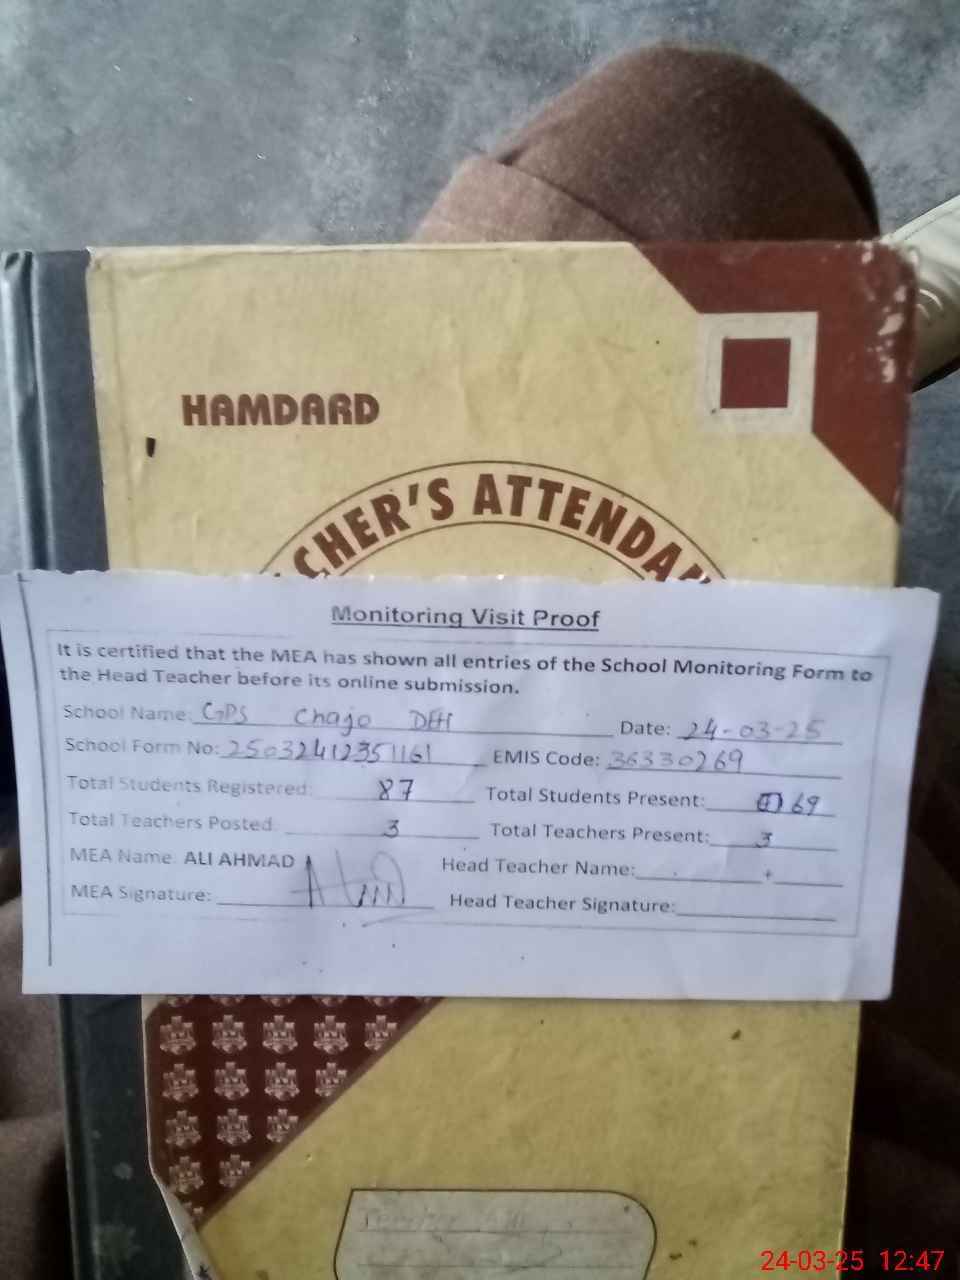 HAMDARD
CHER'S ATTENDA
Monitoring Visit Proof
It is certified that the MEA has shown all entries of the School Monitoring Form to
the Head Teacher before its online submission.
School Name: GPS Chajo DEH Date: 24-03-25
School Form No: 25032412351161 EMIS Code: 36330269
Total Students Registered: 87 Total Students Present: 69
Total Teachers Posted: 3 Total Teachers Present: 3
MEA Name: ALI AHMAD Head Teacher Name:
MEA Signature: Head Teacher Signature:
24-03-25 12:47